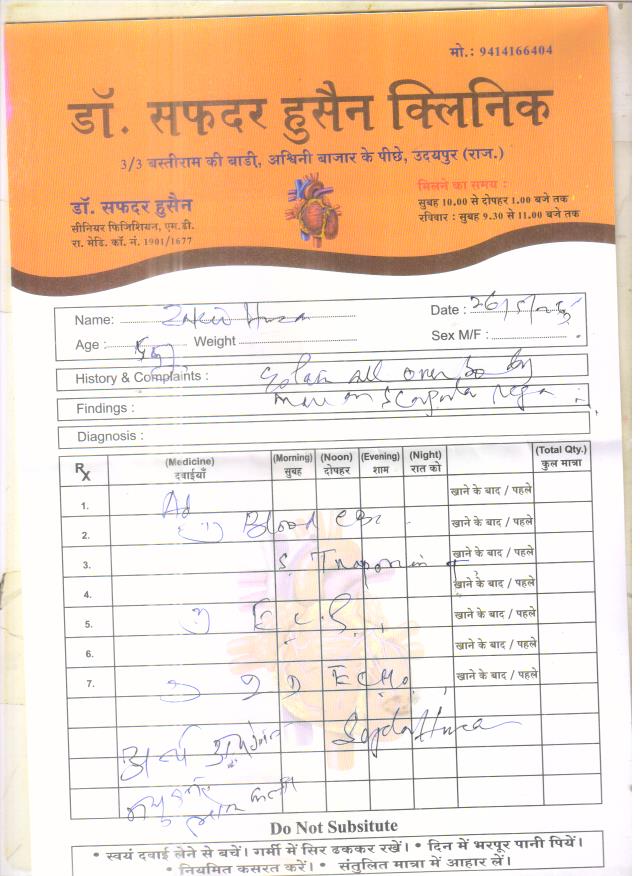 मो.: 9414166404
डॉ. सफदर हुसैन क्लिनिक
3/3 बस्तीराम की बाडी, अश्विनी बाजार के पीछे, उदयपुर (राज.)
डॉ. सफदर हुसैन
सीनियर फिजिशियन, एम.डी.
रा. मेडि. कॉ. नं. 1901/1677
मिलने का समय :
सुबह 10.00 से दोपहर 1.00 बजे तक
रविवार : सुबह 9.30 से 11.00 बजे तक
Name: Date :
Age : Weight Sex M/F :
History & Complaints : all over body
Findings : more on
Diagnosis :
Rx (Medicine) दवाईयाँ (Morning) सुबह (Noon) दोपहर (Evening) शाम (Night) रात को (Total Qty.) कुल मात्रा
1. Ad खाने के बाद / पहले
2. Blood खाने के बाद / पहले
3. S. Troponin खाने के बाद / पहले
4. खाने के बाद / पहले
5. E.C.G. खाने के बाद / पहले
6. खाने के बाद / पहले
7. 2 D ECHO खाने के बाद / पहले
Do Not Subsitute
• स्वयं दवाई लेने से बचें। गर्मी में सिर ढककर रखें। • दिन में भरपूर पानी पियें।
• नियमित कसरत करें। • संतुलित मात्रा में आहार लें।